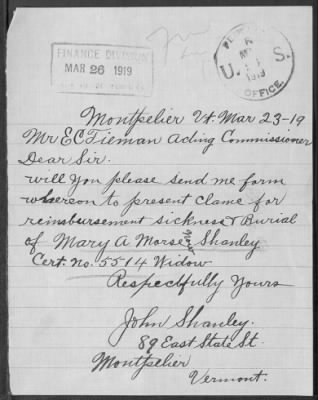 FINANCE DIVISION
MAR 26 1919
U. S.
1919
OFFICE.
Montpelier Vt. Mar 23-19
Mr E C Tieman Acting Commissioner
Dear Sir.
will you please send me form
whereon to present clame for
reimsbursement sickness & Burial
of Mary A Morse now Shanley
Cert. No. 5514 Widow
Respectfully Yours
John Shanley.
89 East State St.
Montpelier
Vermont.